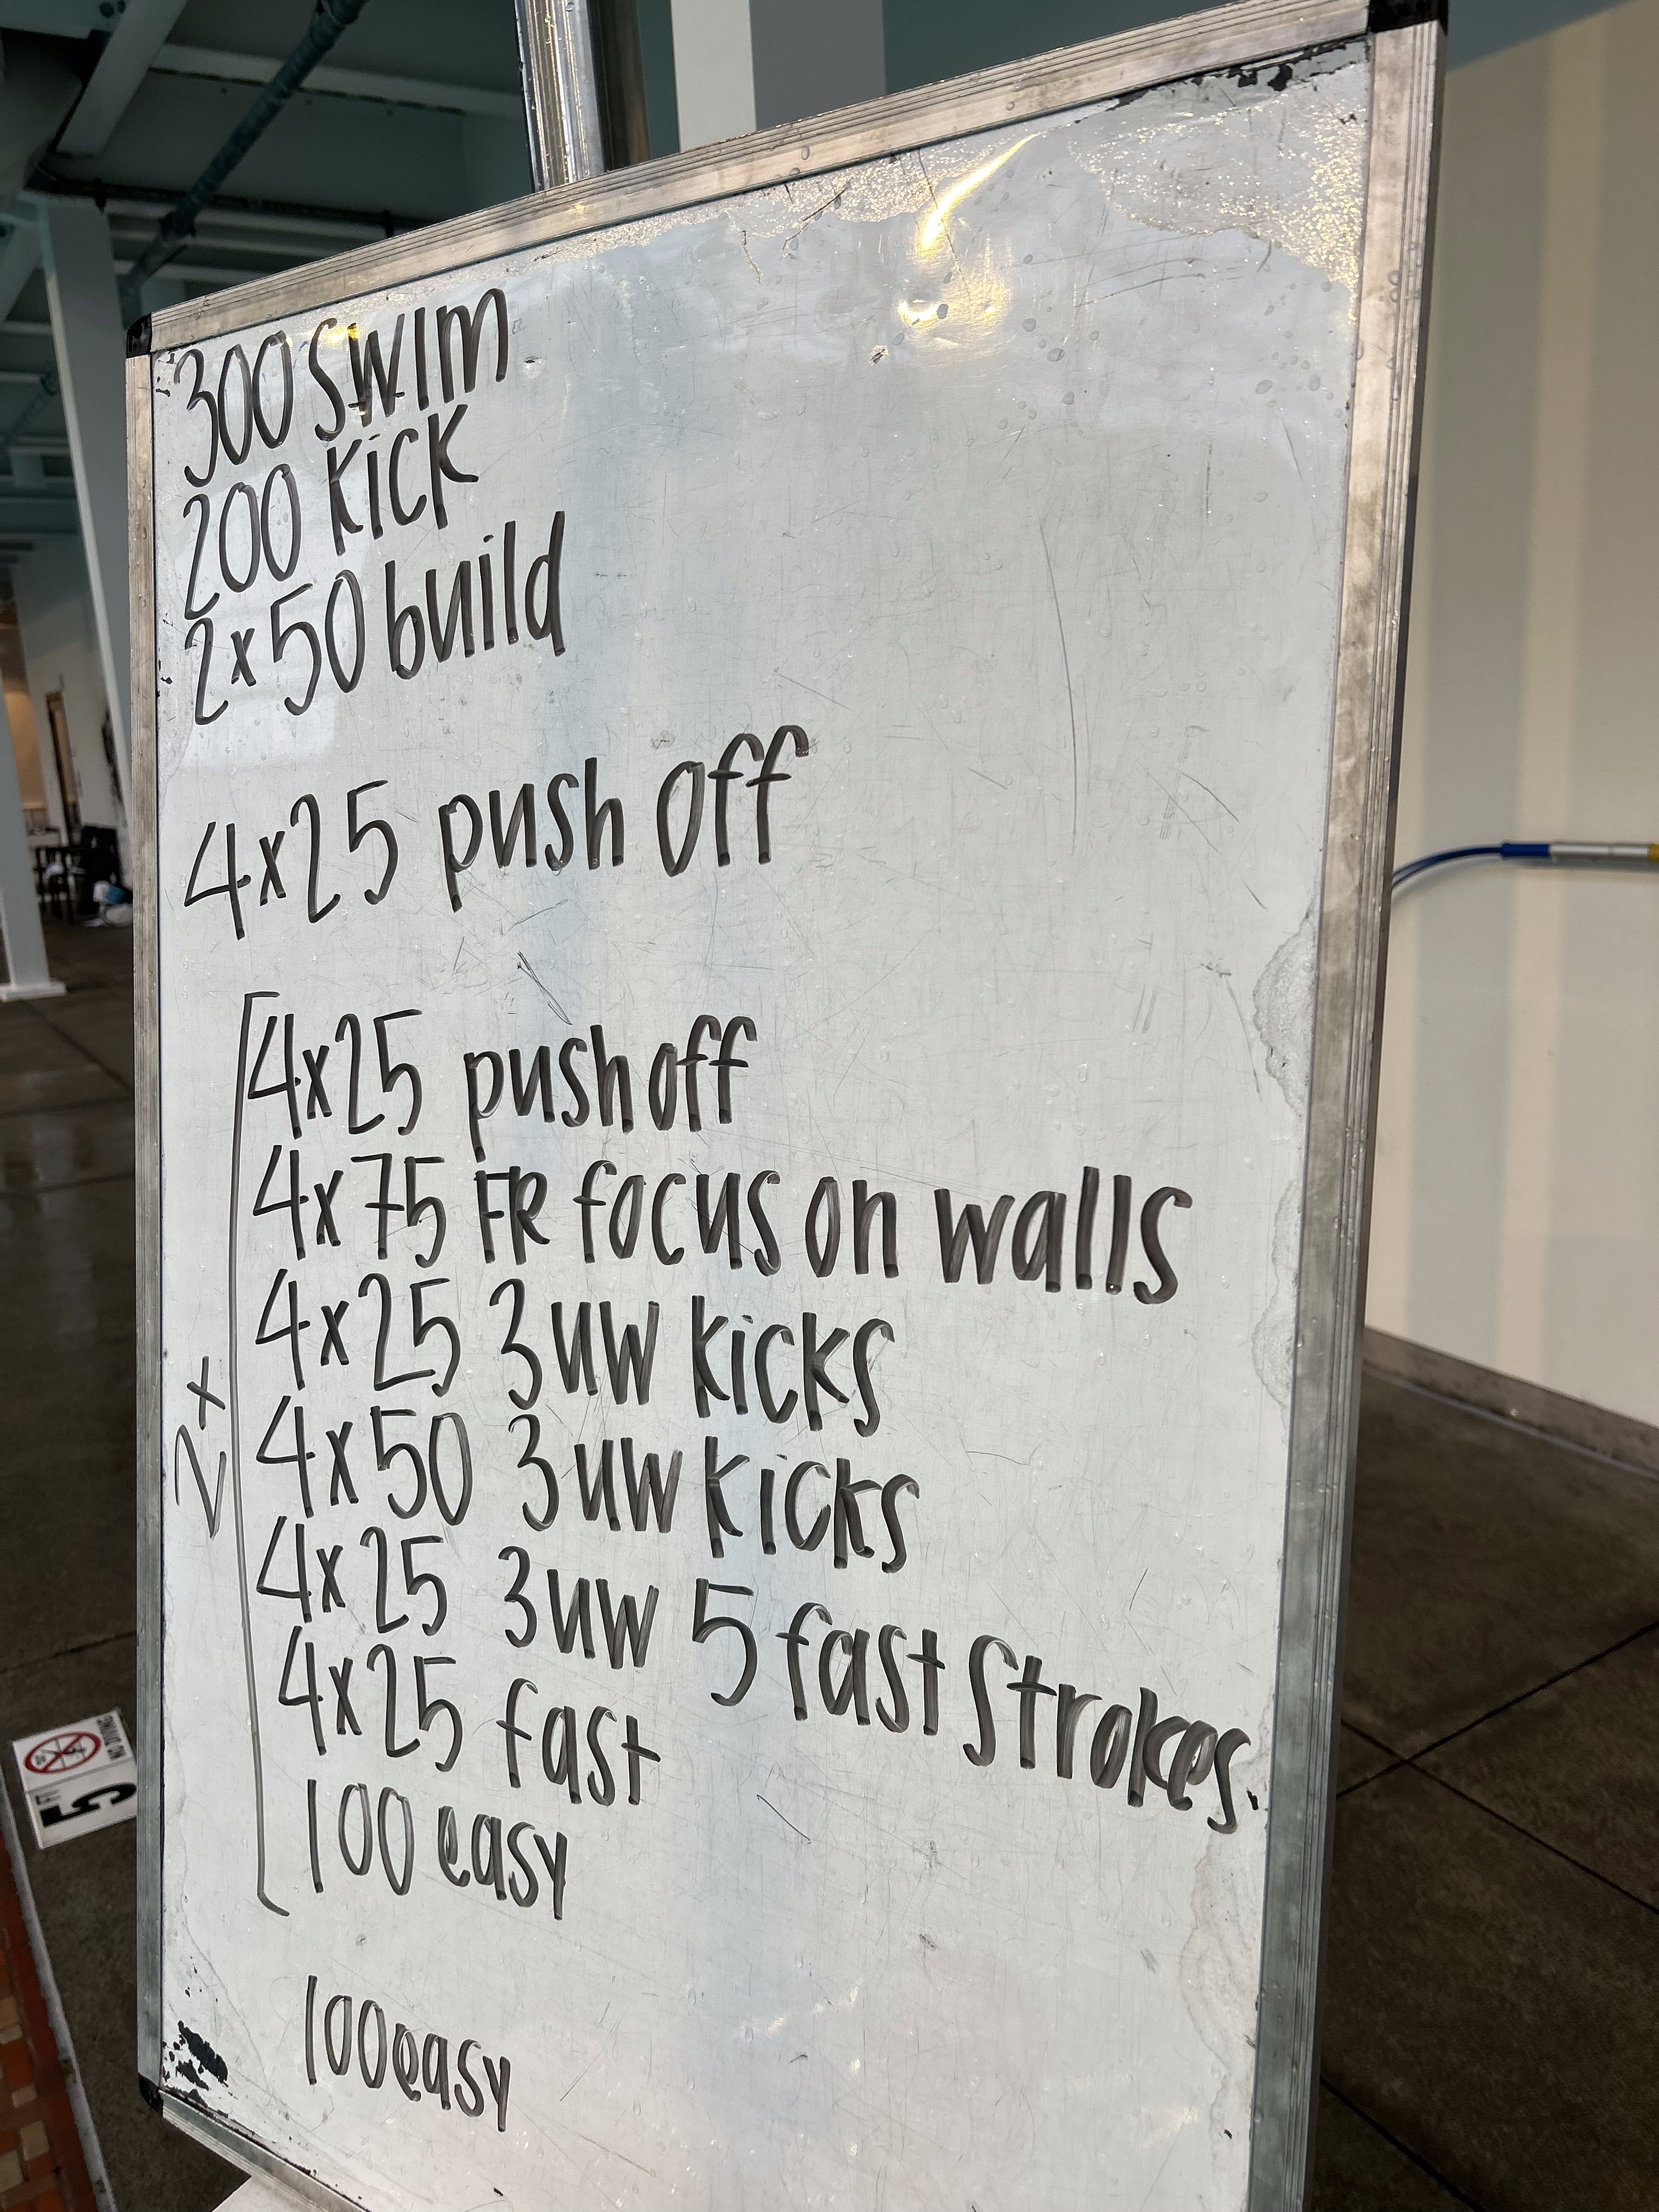 300 swim
200 Kick
2x50 build
4x25 push off
2x
4x25 push off
4x75 FR focus on walls
4x25 3 uw kicks
4x50 3 uw kicks
4x25 3 uw 5 fast strokes.
4x25 fast
100 easy
100 easy
5 FT
NO DIVING